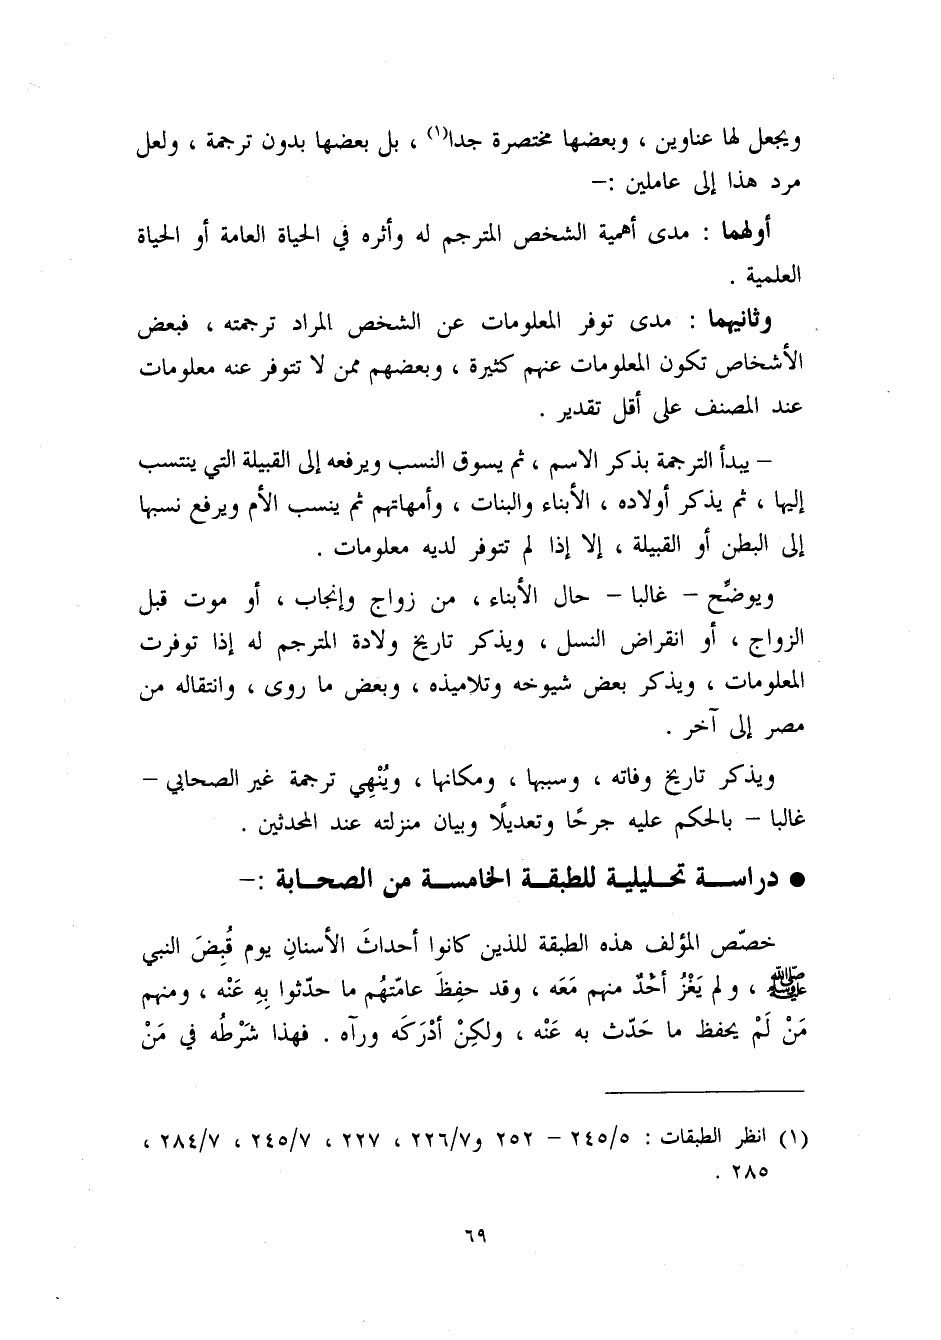 ويجعل لها عناوين ، وبعضها مختصرة جدا(١) ، بل بعضها بدون ترجمة ، ولعل
مرد هذا إلى عاملين :–
أولهما : مدى أهمية الشخص المترجم له وأثره في الحياة العامة أو الحياة
العلمية .
وثانيهما : مدى توفر المعلومات عن الشخص المراد ترجمته ، فبعض
الأشخاص تكون المعلومات عنهم كثيرة ، وبعضهم ممن لا تتوفر عنه معلومات
عند المصنف على أقل تقدير .
– يبدأ الترجمة بذكر الاسم ، ثم يسوق النسب ويرفعه إلى القبيلة التي ينتسب
إليها ، ثم يذكر أولاده ، الأبناء والبنات ، وأمهاتهم ثم ينسب الأم ويرفع نسبها
إلى البطن أو القبيلة ، إلا إذا لم تتوفر لديه معلومات .
ويوضِّح – غالبا – حال الأبناء ، من زواج وإنجاب ، أو موت قبل
الزواج ، أو انقراض النسل ، ويذكر تاريخ ولادة المترجم له إذا توفرت
المعلومات ، ويذكر بعض شيوخه وتلاميذه ، وبعض ما روى ، وانتقاله من
مصر إلى آخر .
ويذكر تاريخ وفاته ، وسببها ، ومكانها ، ويُنْهِي ترجمة غير الصحابي –
غالبا – بالحكم عليه جرحًا وتعديلًا وبيان منزلته عند المحدثين .
● دراســة تحـليلية للطبقـة الخامسـة من الصحـابة :–
خصّص المؤلف هذه الطبقة للذين كانوا أحداثَ الأسنانِ يوم قُبِضَ النبي
ﷺ ، ولم يَغْزُ أحْدٌ منهم مَعَه ، وقد حفِظَ عامّتهُم ما حدّثوا بِهِ عَنْه ، ومنهم
مَنْ لَمْ يحفظ ما حَدّث به عَنْه ، ولكِنْ أدْرَكَه ورآه . فهذا شَرْطُه في مَنْ
(١) انظر الطبقات : ٢٤٥/٥ – ٢٥٢ و٢٢٦/٧ ، ٢٢٧ ، ٢٤٥/٧ ، ٢٨٤/٧ ،
٢٨٥ .
٦٩